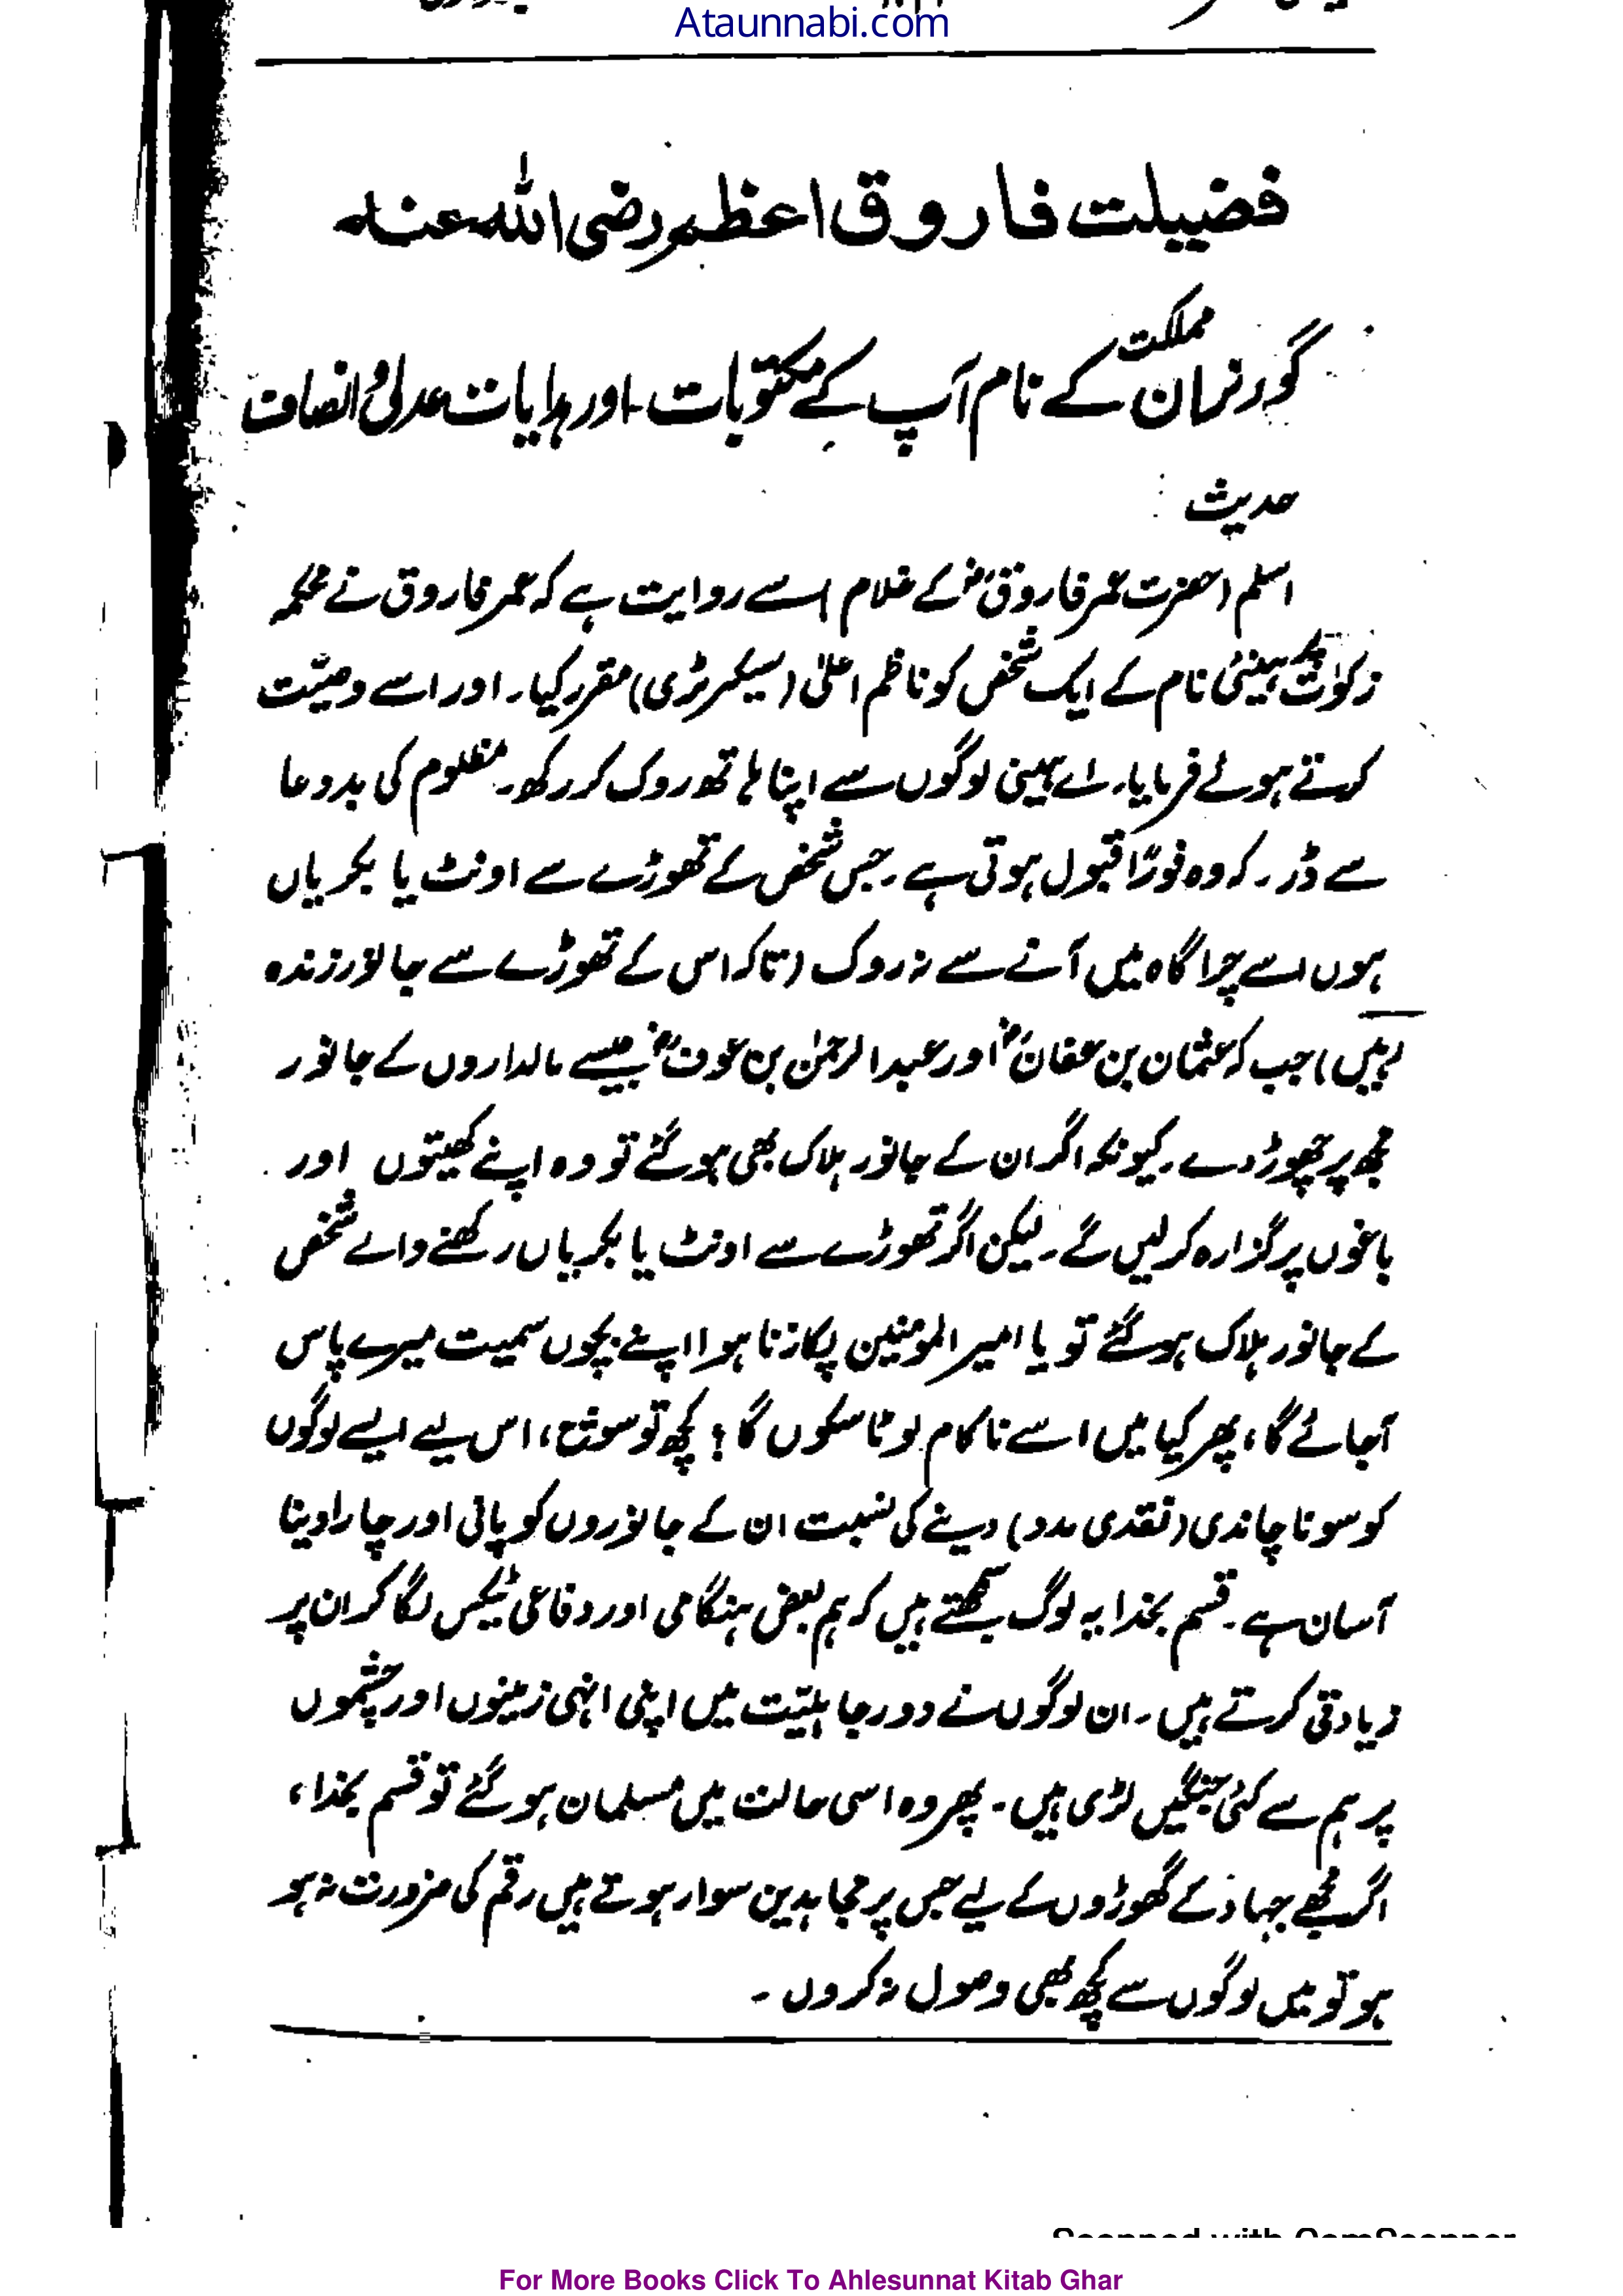 Ataunnabi.com
فضیلت فاروق اعظم رضی اللہ عنہ
گورنران مملکت کے نام آپ کے مکتوبات اور ہدایات عدل و انصاف
حدیث
اسلم (حضرت عمر فاروقؓ کے غلام) سے روایت ہے کہ عمر فاروق نے محکمہ
زکوٰۃ پر ہینئ نام کے ایک شخص کو ناظم اعلیٰ (سیکرٹری) مقرر کیا۔ اور اسے وصیّت
کرتے ہوئے فرمایا۔ اے ہینئ لوگوں سے اپنا ہاتھ روک کر رکھ۔ مظلوم کی بددعا
سے ڈر۔ کہ وہ فورًا قبول ہوتی ہے۔ جس شخص کے تھوڑے سے اونٹ یا بکریاں
ہوں اسے چراگاہ میں آنے سے نہ روک (تاکہ اس کے تھوڑے سے جانور زندہ
رہیں) جب کہ عثمان بن عفانؓ اور عبدالرحمٰن بن عوفؓ جیسے مالداروں کے جانور
مجھ پر چھوڑ دے۔ کیونکہ اگر ان کے جانور ہلاک بھی ہو گئے تو وہ اپنے کھیتوں اور
باغوں پر گزارہ کر لیں گے۔ لیکن اگر تھوڑے سے اونٹ یا بکریاں رکھنے والے شخص
کے جانور ہلاک ہو گئے تو یا امیر المومنین پکارتا ہوا اپنے بچوں سمیت میرے پاس
آ جائے گا، پھر کیا میں اسے ناکام لوٹا سکوں گا؟ کچھ تو سوچ، اس لیے ایسے لوگوں
کو سونا چاندی (نقدی مدد) دینے کی نسبت ان کے جانوروں کو پانی اور چارا دینا
آسان ہے۔ قسم بخدا یہ لوگ سمجھتے ہیں کہ ہم بعض ہنگامی اور دفاعی ٹیکس لگا کر ان پر
زیادتی کرتے ہیں۔ ان لوگوں نے دور جاہلیّت میں اپنی انہی زمینوں اور چشموں
پر ہم سے کئی جنگیں لڑی ہیں۔ پھر وہ اسی حالت میں مسلمان ہو گئے تو قسم بخدا،
اگر مجھے جہاد کے گھوڑوں کے لیے جس پر مجاہدین سوار ہوتے ہیں رقم کی ضرورت نہ ہو
ہو تو میں لوگوں سے کچھ بھی وصول نہ کروں۔
Scanned with CamScanner
For More Books Click To Ahlesunnat Kitab Ghar